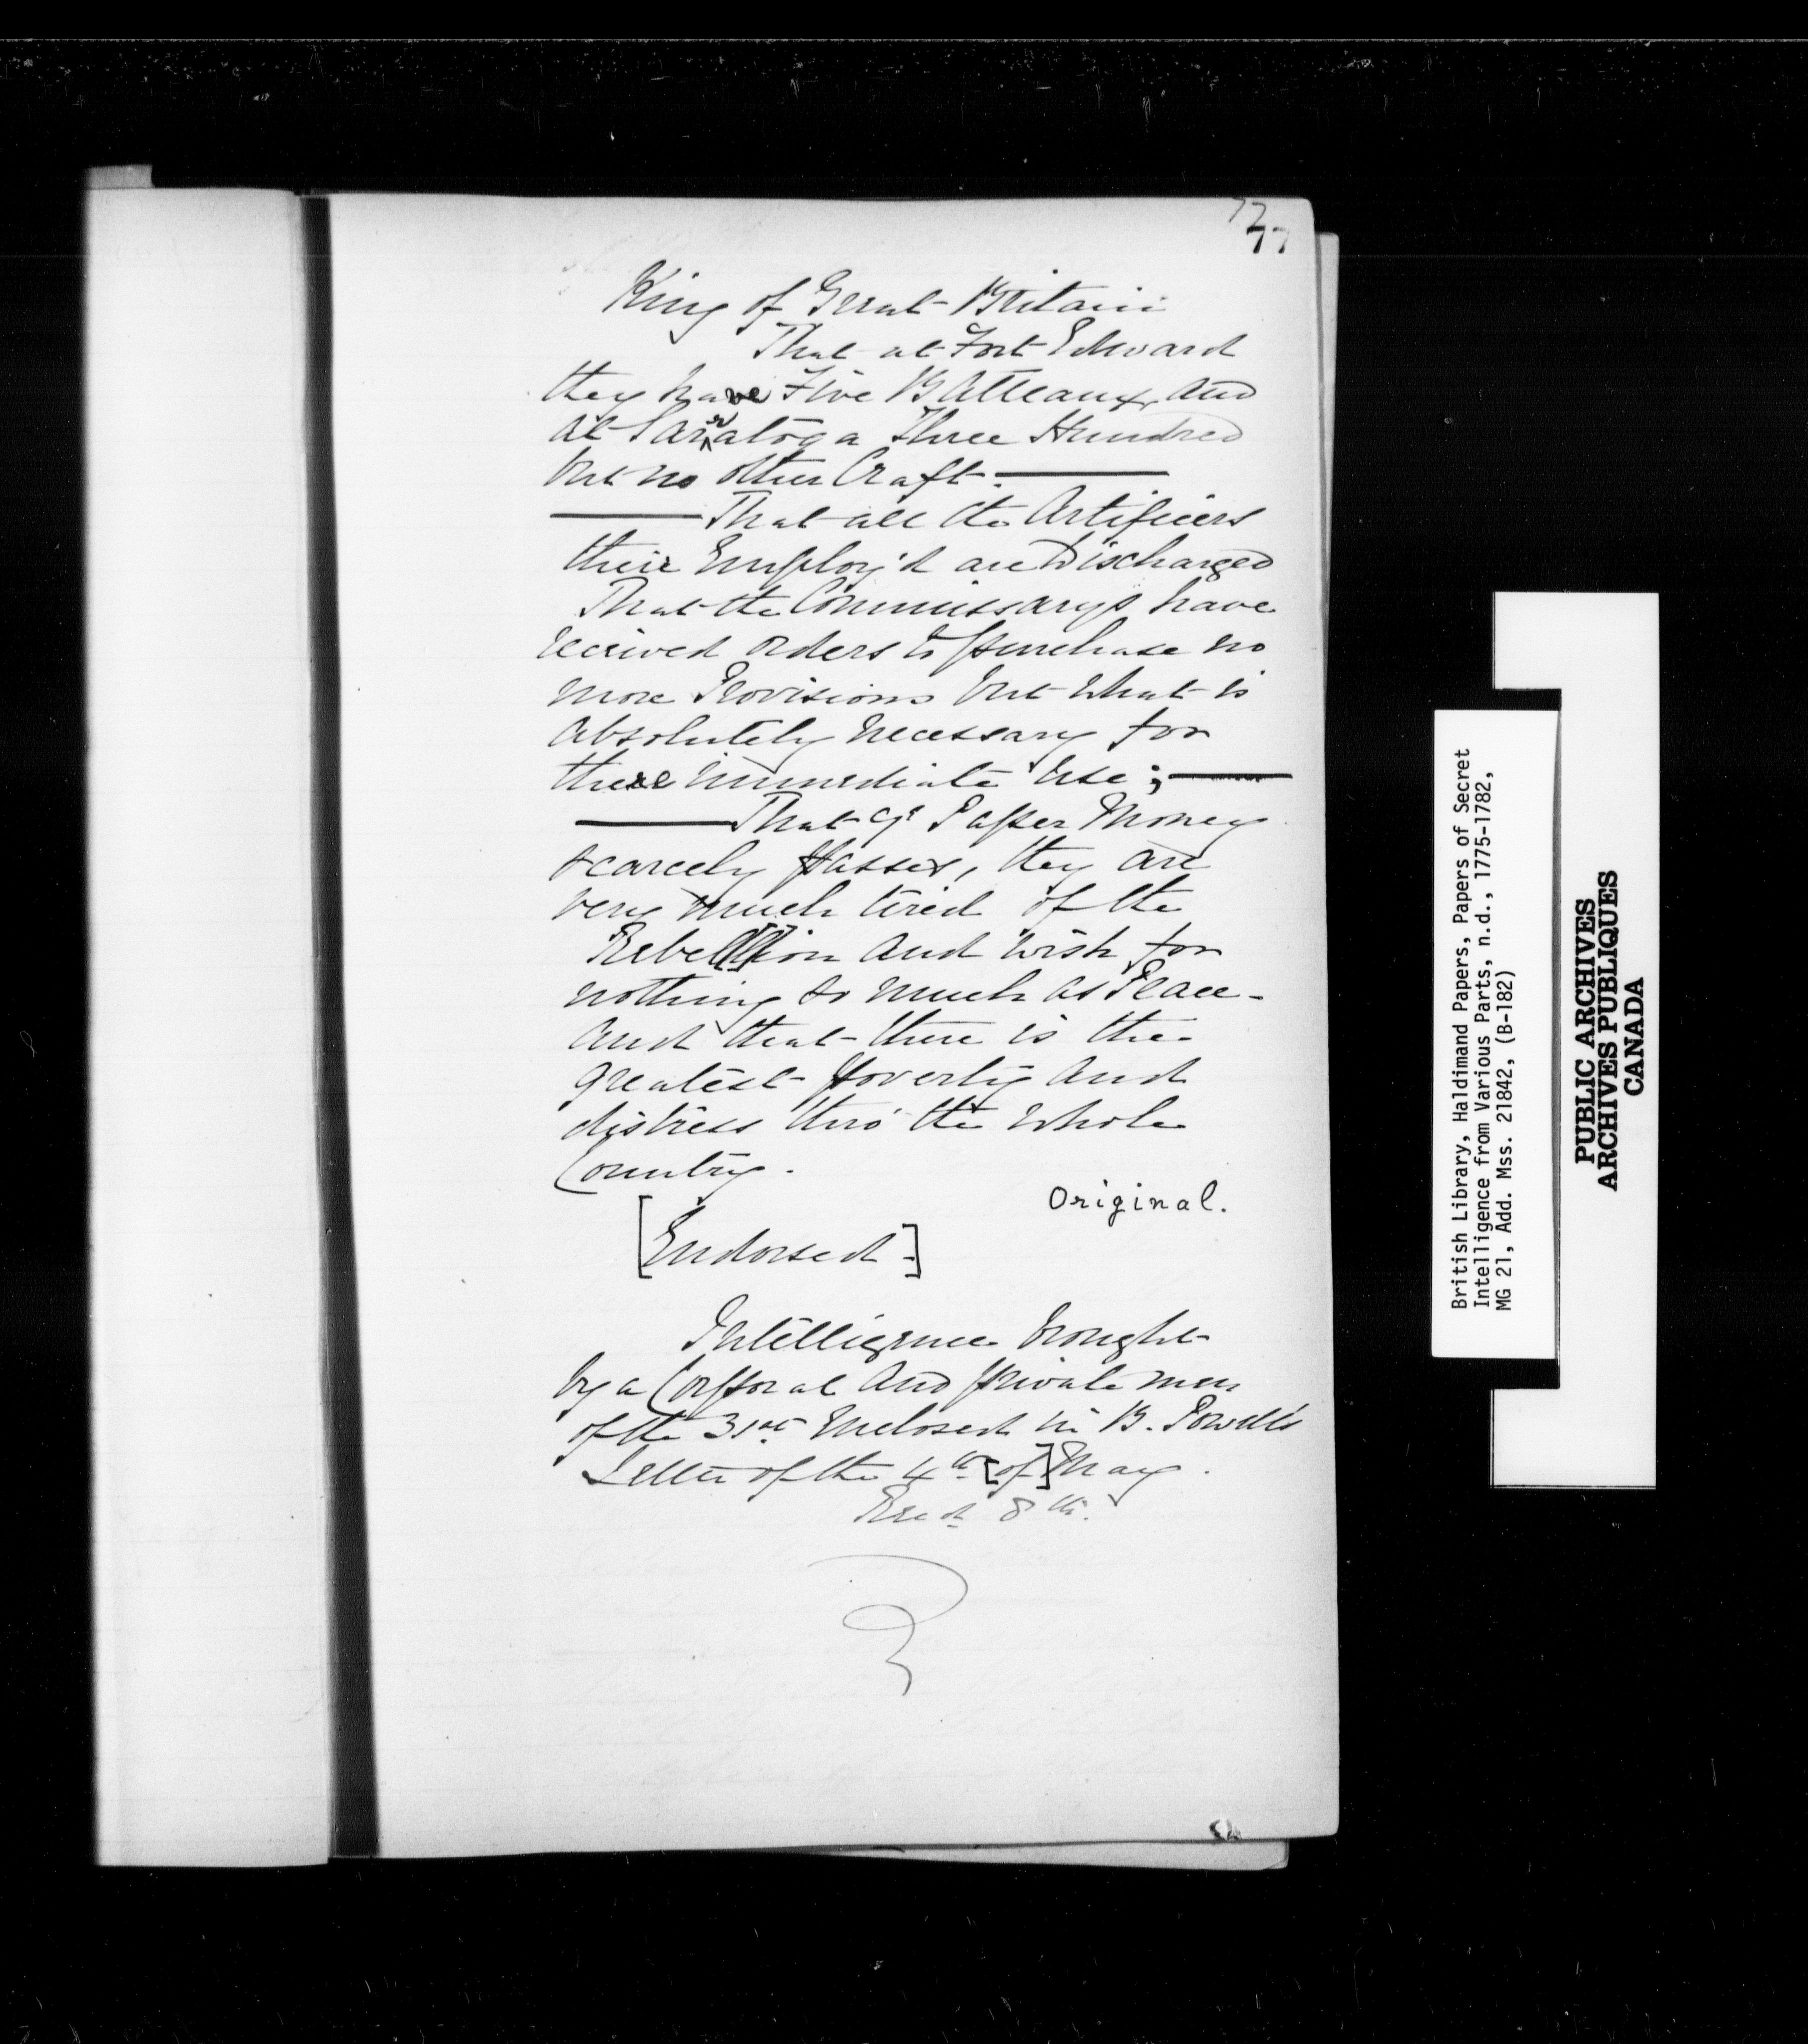 72
77
King of Great Britain
That at Fort Edward
they have Five Batteaux, and
at Sarratoga Three Hundred
but no other Craft.
That all the Artificers
their Employ'd are Discharged
That the Commissarys have
received orders to purchase no
more Provisions but what is
absolutely necessary for
there immediate use;
That ye Paper Money
scarcely passes, they are
very much tired of the
Rebellion and wish for
nothing so much as Peace-
and that there is the
greatest poverty and
distress thro' the whole
Country.
Original.
[Endorsed]
Intelligence brought
by a Corporal and private men
of the 31st Enclosed in B. Powell's
Letter of the 4th [of] May.
Recd 8th.
British Library, Haldimand Papers, Papers of Secret
Intelligence from Various Parts, n.d., 1775-1782,
MG 21, Add. Mss. 21842, (B-182)
PUBLIC ARCHIVES
ARCHIVES PUBLIQUES
CANADA